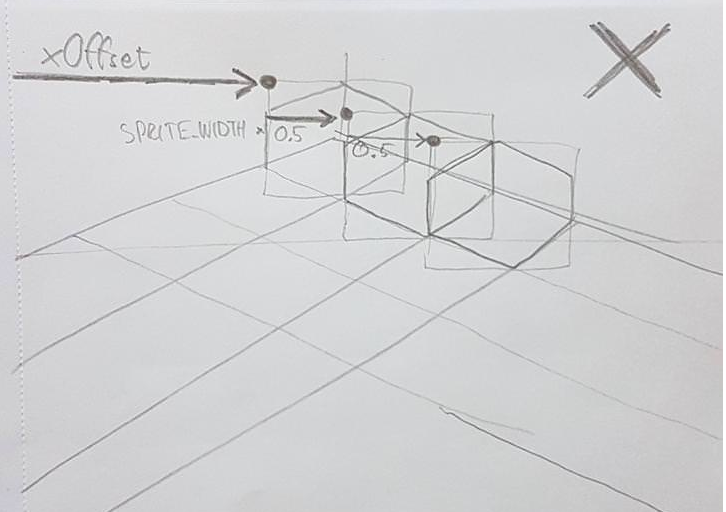 xOffset
SPRITE_WIDTH × 0.5
0.5
X